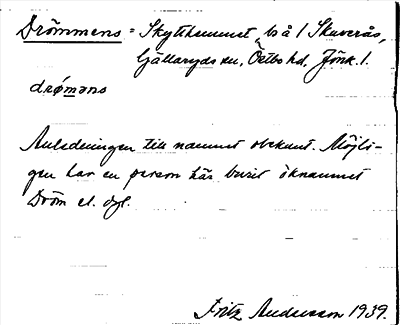 Drömmens = Skytthemmet, bs å 1 Skuverås,
Gällaryds sn, Östbo hd, Jönk. l.
drømans
Anledningen till namnet obekant. Möjli-
gen har en person här burit öknamnet
Dröm el. dyl.
Fritz Andersson 1939.